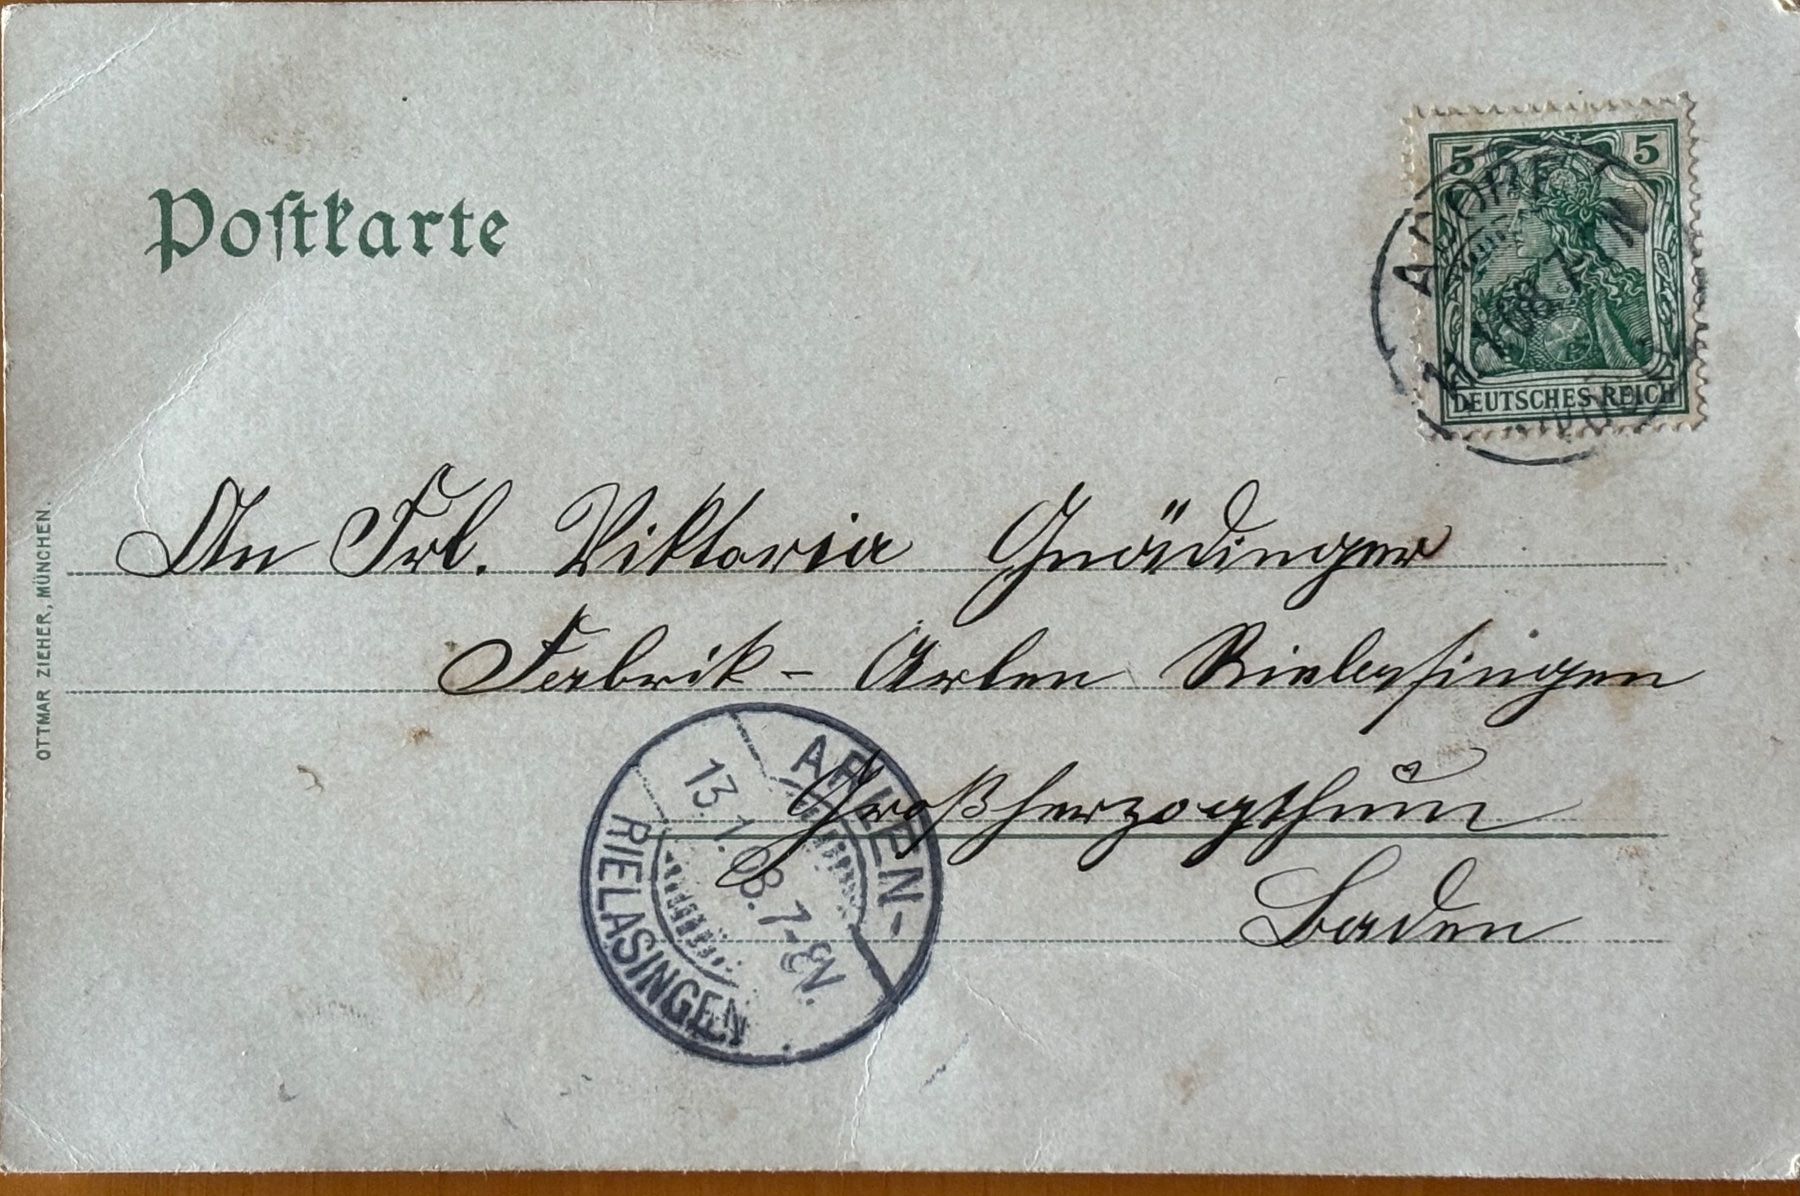 Postkarte
5 5
DEUTSCHES REICH
08. 7-
An Frl. Viktoria Gnädinger
Fabrik - Arlen Rielasingen
Großherzogthum
Baden
ARLEN-
RIELASINGEN
13.1.08.7-8N.
OTTMAR ZIEHER, MÜNCHEN.